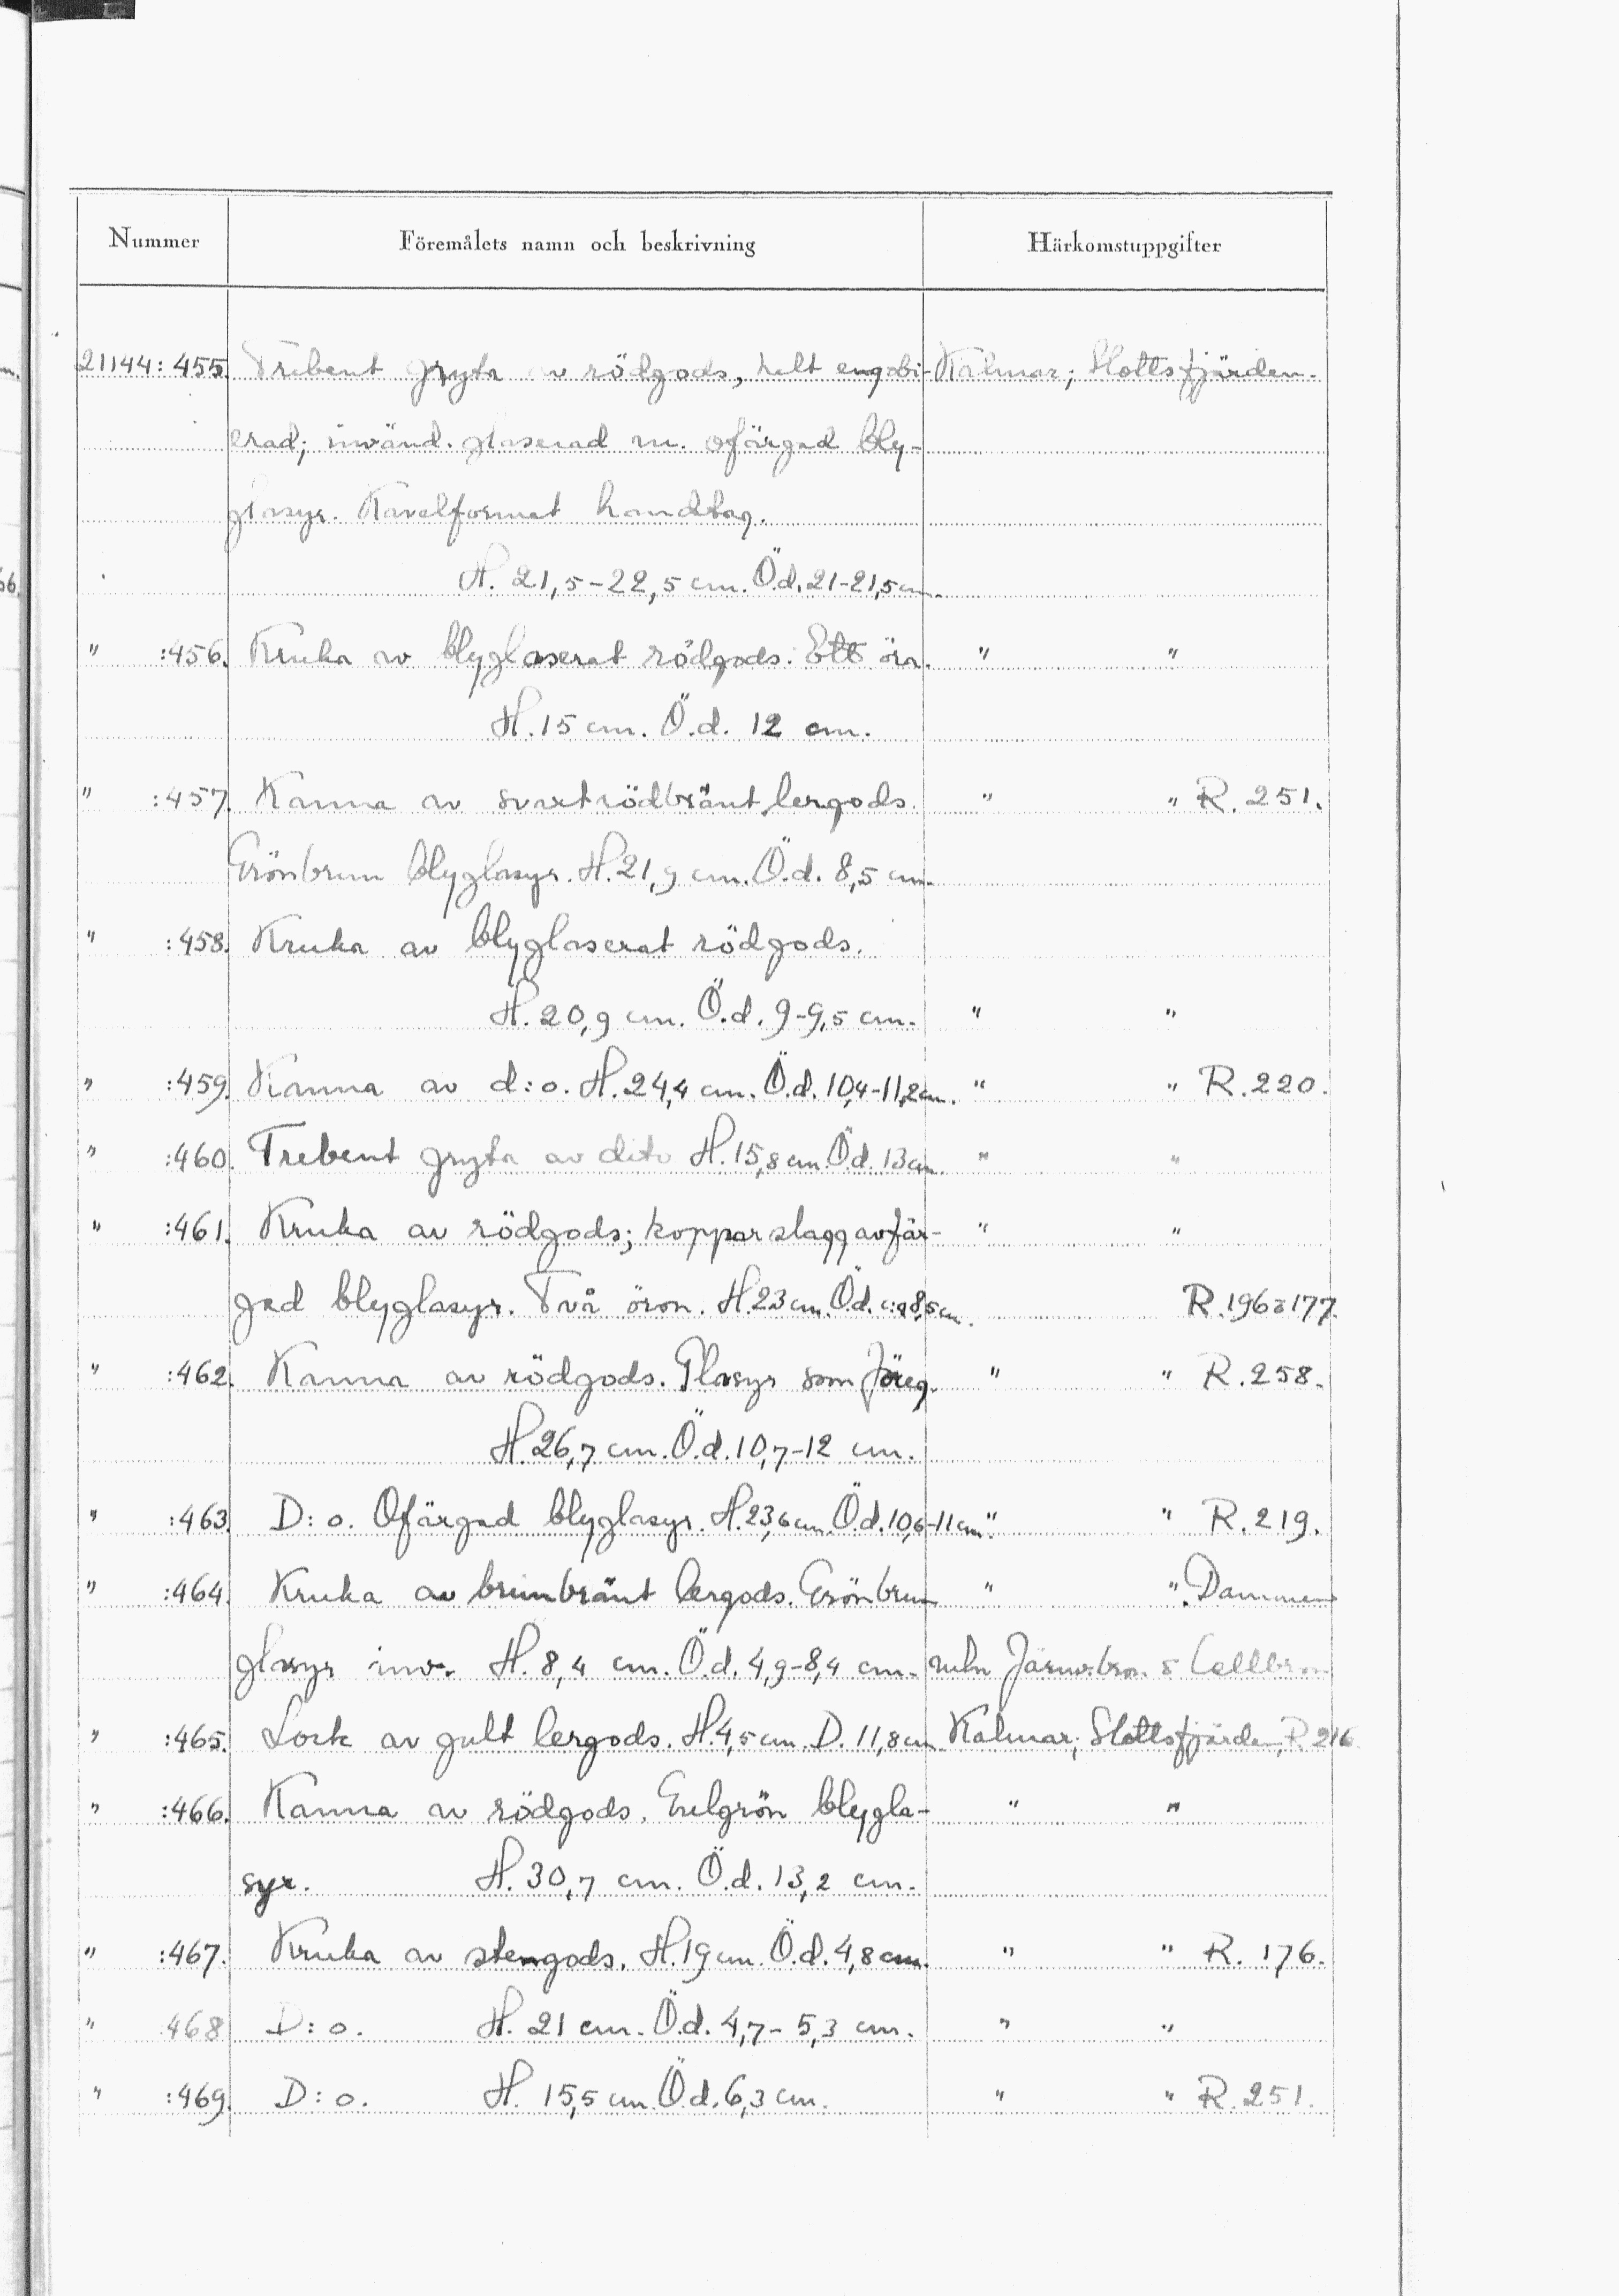 Nummer Föremålets namn och beskrivning Härkomstuppgifter
21144:455. Trebent gryta av rödgods, helt engobi- Kalmar; Slottsfjärden.
erad; invänd. glaserad m. ofärgad bly-
glasyr. Kavelformat handtag.
H. 21,5-22,5 cm. Ö.d. 21-21,5 cm.
" :456. Kruka av blyglaserat rödgods. Ett öra. " "
H. 15 cm. Ö.d. 12 cm.
" :457. Kanna av svartrödbränt lergods. " " R. 251.
Grönbrun blyglasyr. H. 21,9 cm. Ö.d. 8,5 cm.
" :458. Kruka av blyglaserat rödgods.
H. 20,9 cm. Ö.d. 9-9,5 cm. " "
" :459. Kanna av d:o. H. 24,4 cm. Ö.d. 10,4-11,2 cm. " " R. 220.
" :460. Trebent gryta av dito H. 15,8 cm. Ö.d. 13 cm. " "
" :461. Kruka av rödgods; kopparslaggavfär- " "
gad blyglasyr. Två öron. H. 23 cm. Ö.d. c:a 8,5 cm. R. 196 177.
" :462. Kanna av rödgods. Glasyr som föreg. " " R. 258.
H. 26,7 cm. Ö.d. 10,7-12 cm.
" :463. D:o. Ofärgad blyglasyr. H. 23,6 cm. Ö.d. 10,6-11 cm. " " R. 219.
" :464. Kruka av brunbränt lergods. Grönbrun " ". Dammen
glasyr inv. H. 8,4 cm. Ö.d. 4,9-8,4 cm. Järnv.bron
" :465. Lock av gult lergods. H. 4,5 cm. D. 11,8 cm. Kalmar; Slottsfjärden, R. 216
" :466. Kanna av rödgods. Gulgrön blygla- " "
syr. H. 30,7 cm. Ö.d. 13,2 cm.
" :467. Kruka av stengods. H. 19 cm. Ö.d. 4,8 cm. " " R. 176.
" 468 D:o. H. 21 cm. Ö.d. 4,7-5,3 cm. " "
" :469. D:o. H. 15,5 cm. Ö.d. 6,3 cm. " " R. 251.